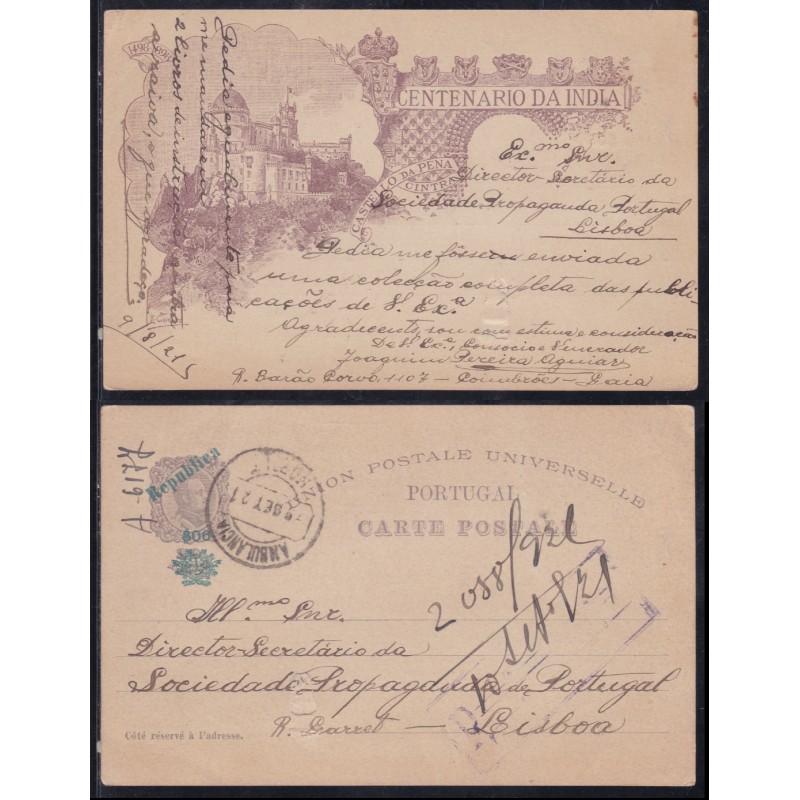 1498-1898
CENTENARIO DA INDIA
CASTELLO DA PENA
CINTRA
Ex.mo Snr.
Director-Secretário da
Sociedade Propaganda Portugal
Lisboa
Pedia me fôssem enviada
uma colecção completa das publi-
cações de V. Ex.ª
Agradecente, sou com estima e consideração
De V. Ex.ª, Consocio e Venerador
Joaquim Pereira Aguiar
R. Barão Corvo, 1107 - Coimbrões - Gaia
Pedia egualmente para
me mandarem
2 livros de instrucção contra
a raiva, o que agradeço.
9/8/21
Republica
$06
AMBULANCIA
SET 21
UNION POSTALE UNIVERSELLE
PORTUGAL
CARTE POSTALE
2088/921
10 Setº/21
Ill.mo Snr.
Director-Secretário da
Sociedade Propaganda de Portugal
R. Garret - Lisboa
Côté réservé à l'adresse.